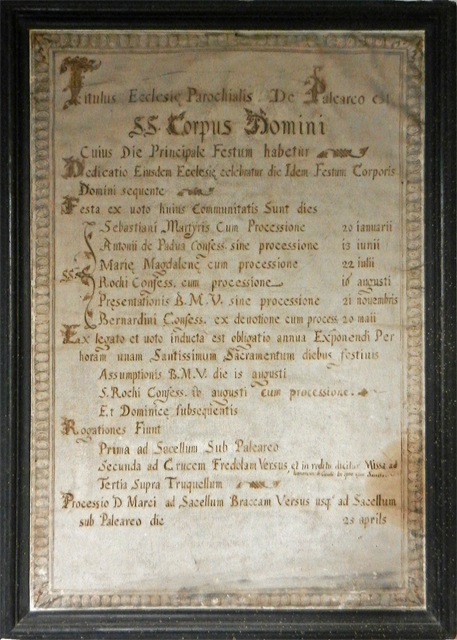 Titulus Ecclesię Parochialis De Palearco est
SS. Corpus Domini
Cuius Die Principale Festum habetur
Dedicatio Eiusdem Ecclesię celebratur die Idem Festum Corporis
Domini sequente
Festa ex uoto huius Communitatis Sunt dies
SS.
Sebastiani Martyris Cum Processione 20 ianuarii
Antonii de Padua Confess. sine processione 13 iunii
Marię Magdalenę cum processione 22 iulii
Rochi Confess. cum processione 16 augusti
Presentationis B.M.V. sine processione 21 nouembris
Bernardini Confess. ex deuotione cum process. 20 maii
Ex legato et uoto inducta est obligatio annua Exponendi Per
horam unam Santissimum Sacramentum diebus festiuis
Assumptionis B.M.V. die 15 augusti
S. Rochi Confess. 16 augusti cum processione.
Et Dominice subsequentis
Rogationes Fiunt
Prima ad Sacellum Sub Paleareo
Secunda ad Crucem Fredolam Versus et in reditu dicitur Missa ad
Tertia Supra Truquellum
Processio D Marci ad Sacellum Braccam Versus usq. ad Sacellum
sub Paleareo die 25 aprilis